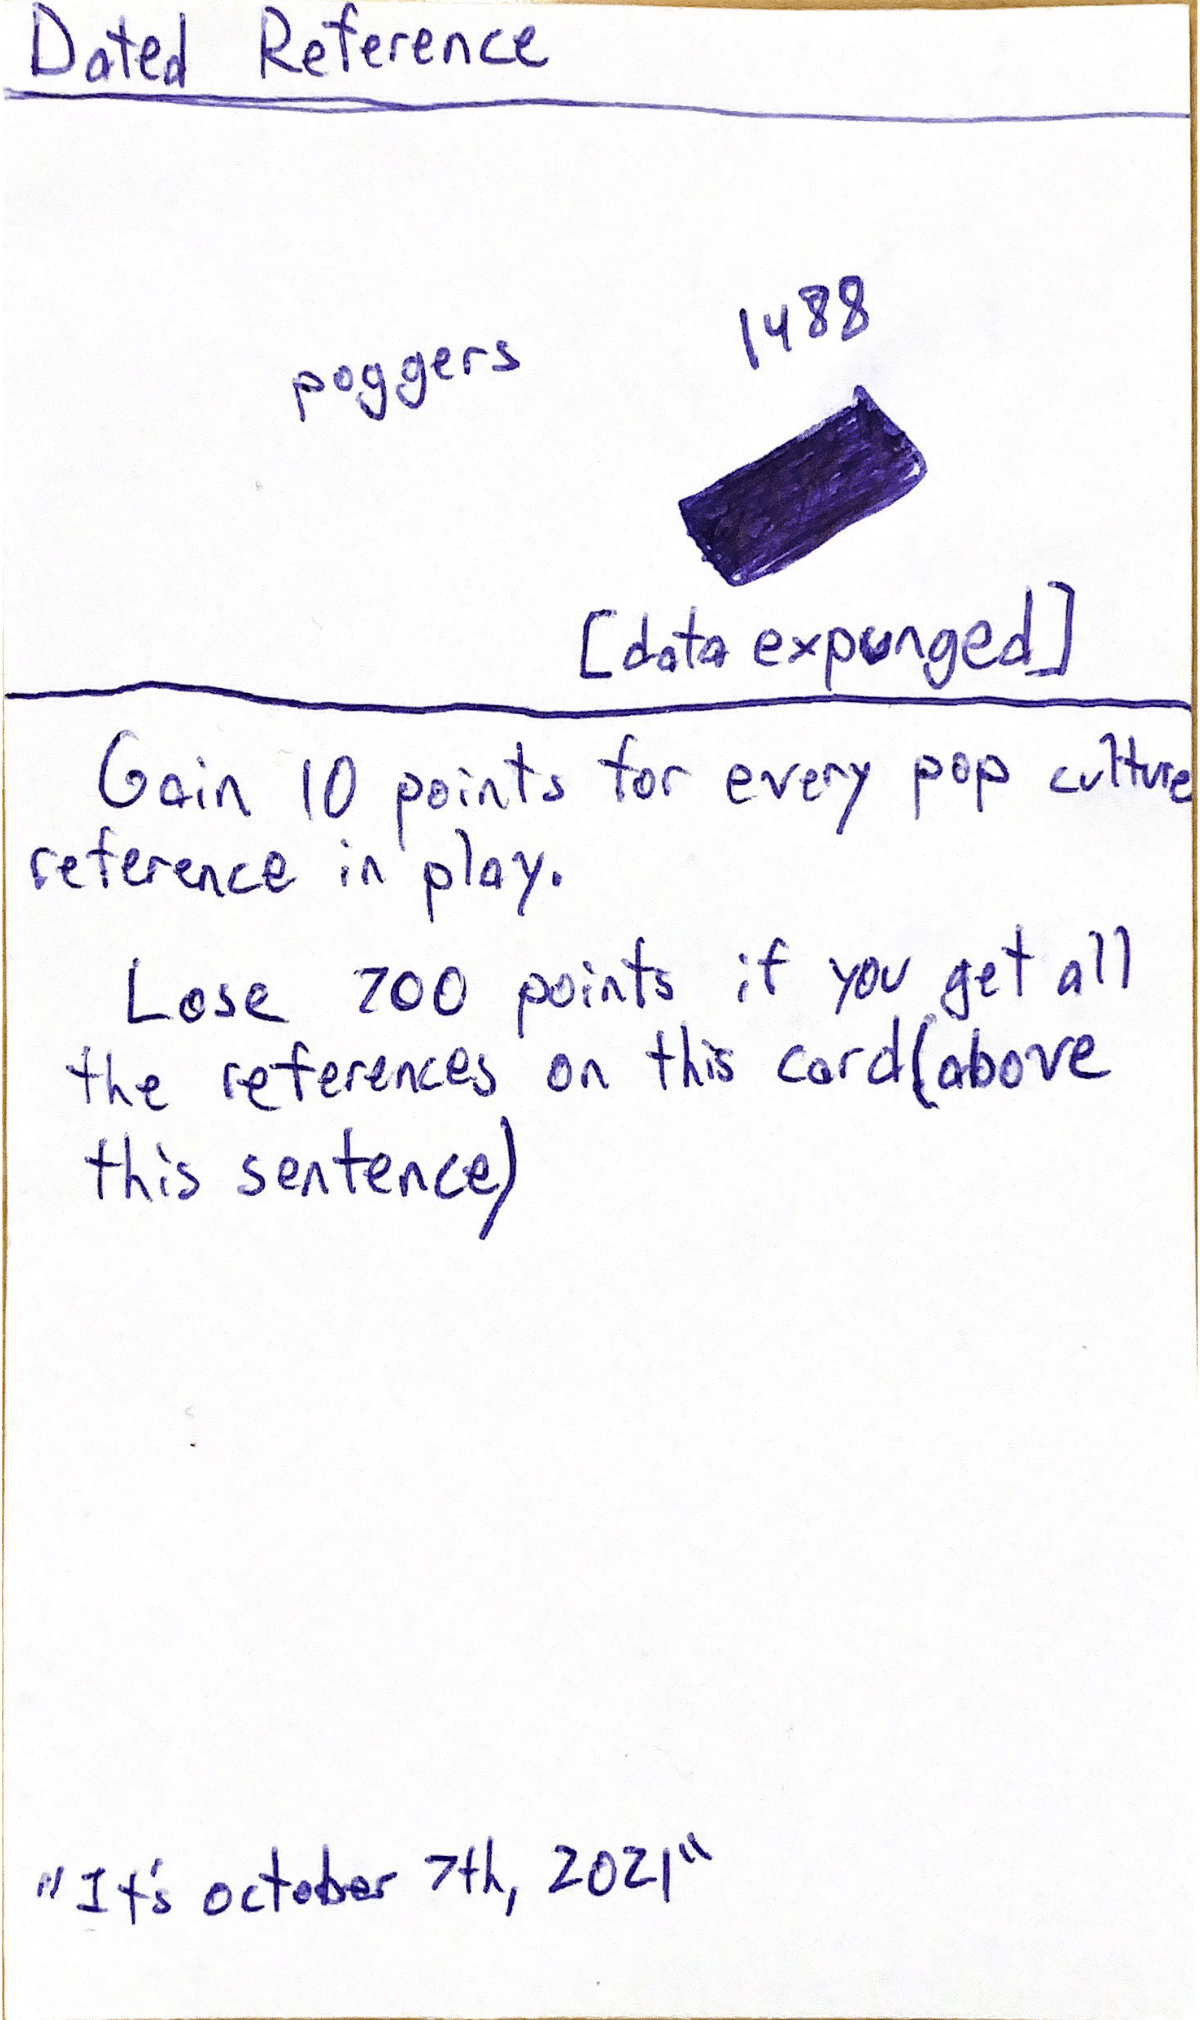 Dated Reference
poggers
1488
[data expunged]
Gain 10 points for every pop culture
reference in play.
Lose 700 points if you get all
the references on this card(above
this sentence)
"It's october 7th, 2021"